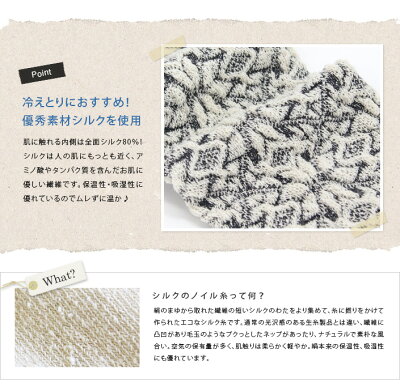 Point
冷えとりにおすすめ!
優秀素材シルクを使用
肌に触れる内側は全面シルク80%!
シルクは人の肌にもっとも近く、ア
ミノ酸やタンパク質を含んだお肌に
優しい繊維です。保温性・吸湿性に
優れているのでムレずに温か♪
What?
シルクのノイル糸って何?
絹のまゆから取れた繊維の短いシルクのわたをより集めて、糸に撚りをかけて
作られたエコなシルク糸です。通常の光沢感のある生糸製品とは違い、繊維に
凸凹があり毛玉のようなプクっとしたネップがあったり、ナチュラルで素朴な風
合い。空気の保有量が多く、肌触りは柔らかく軽やか。絹本来の保温性、吸湿性
にも優れています。